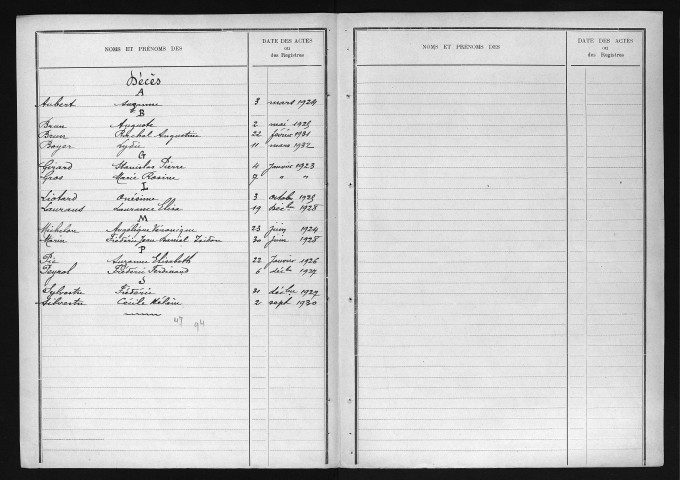 NOMS ET PRÉNOMS DES DATE DES ACTES
ou
des Registres
Décès
A
Aubert Suzanne 3 mars 1924
B
Brun Auguste 2 mai
Brun Rachel Augustine 22 février 1931
Boyer Lydie 11 mars 1932
G
Girard Stanislas Pierre 4 Janvier 1923
Gros Marie Rosine 7 " "
L
Liotard Onésime 3 octobre
Laurans Laurence Elisa 19 décbre 1928
M
Michelon Angélique Véronique 23 juin 1924
Marin Frédéric Jean Daniel 30 juin 1928
P
Pic Suzanne Elisabeth 22 Janvier 1926
Peyrol Frédéric Ferdinand 6 décbre
S
Sylvestre Frédéric 21 décbre 1927
Silvestre Cécile Hélène 2 sept 1930
94
NOMS ET PRÉNOMS DES DATE DES ACTES
ou
des Registres